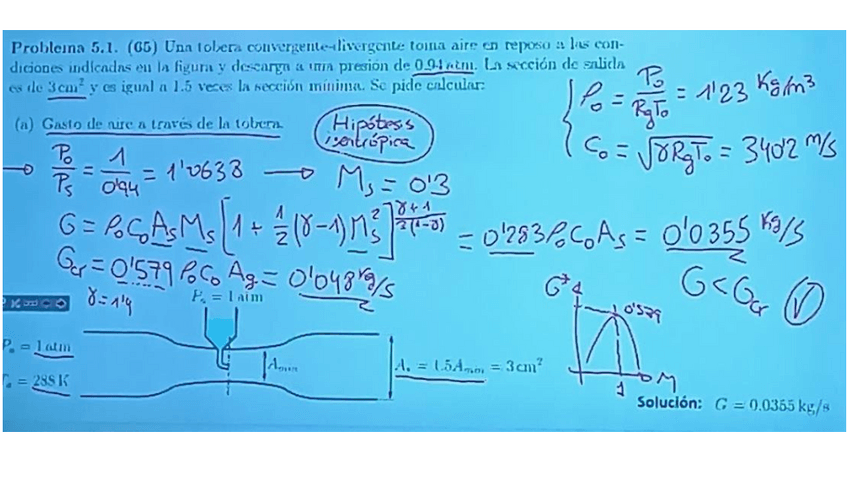 Problema 5.1. (65) Una tobera convergente-divergente toma aire en reposo a las con-
diciones indicadas en la figura y descarga a una presión de 0.94 atm. La sección de salida
es de 3 cm² y es igual a 1.5 veces la sección mínima. Se pide calcular:
(a) Gasto de aire a través de la tobera.
Hipótesis
isentrópica
ρ₀ = P₀/(RgT₀) = 1'23 Kg/m³
C₀ = √(γRgT₀) = 340'2 m/s
P₀/Ps = 1/0'94 = 1'0638 → Ms = 0'3
G = ρ₀C₀AsMs[1 + 1/2(γ-1)Ms²]^((γ+1)/(2(1-γ))) = 0'283ρ₀C₀As = 0'0355 Kg/s
Gcr = 0'579 ρ₀C₀Ag = 0'048 Kg/s
G < Gcr
γ = 1'4
= 1 atm
= 1 atm
= 288 K
Amin
As = 1.5Amin = 3 cm²
G*
0'579
1
M
Solución: G = 0.0355 kg/s